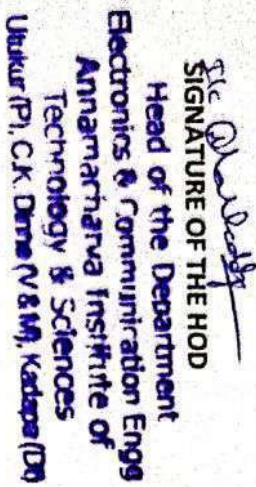 SIGNATURE OF THE HOD
Head of the Department
Electronics & Communication Engg
Annamacharya Institute of
Technology & Sciences
Utukur (P), C.K. Dinne (V & M), Kadapa (Dt)